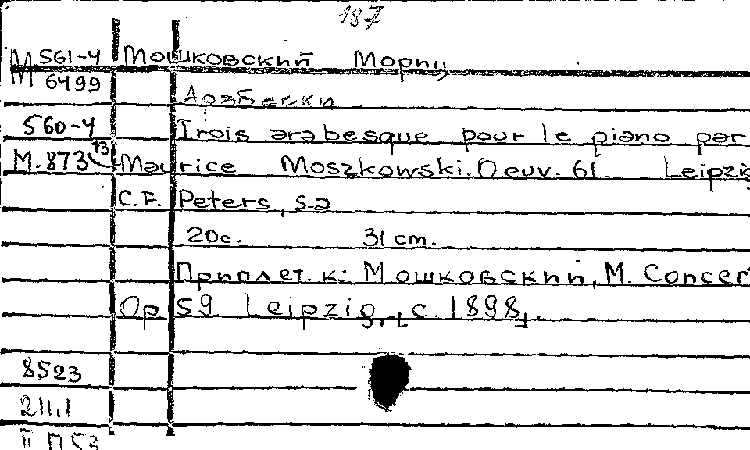 187
М 561-4 Мошковский Мориц
6499
Арабески
560-4 Trois arabesque pour le piano par
М.873 13 Maurice Moszkowski. Oeuv. 61 Leipzig
C.F. Peters, s.a
20c. 31 cm.
Приплет. к: Мошковский, М. Concer
Op 59 Leipzig, [с. 1898].
8523
211.1
II П 53